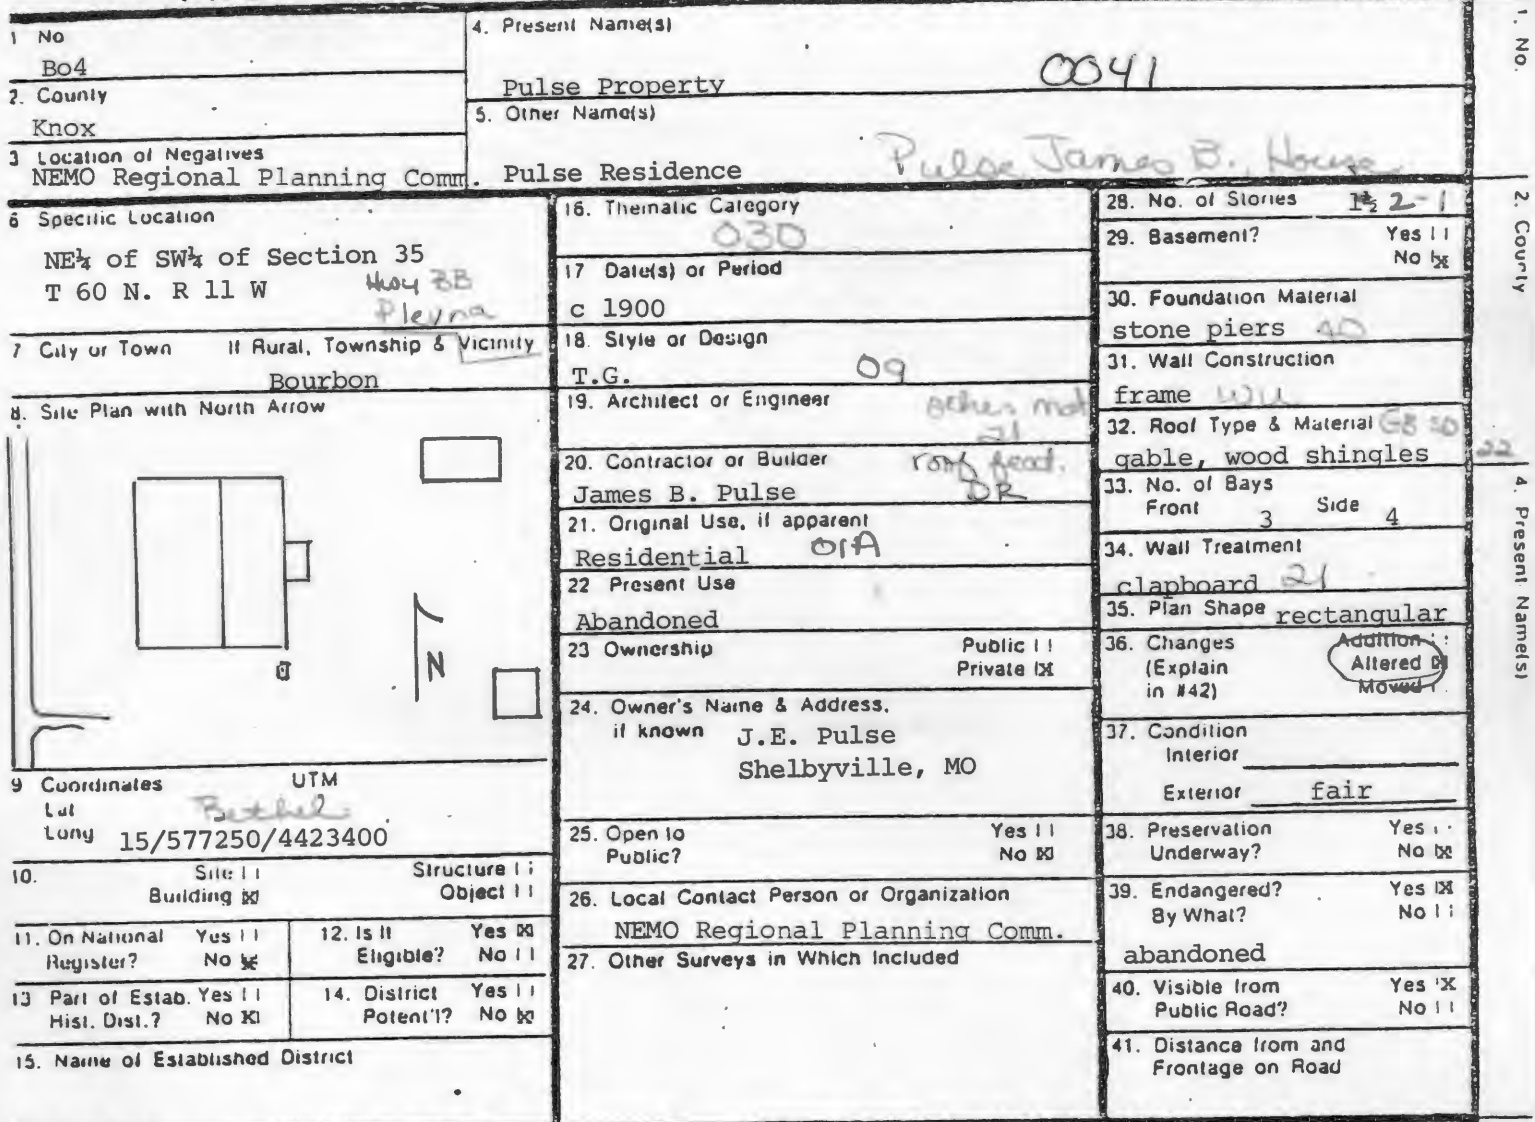 1 No
Bo4
2. County
Knox
3 Location of Negatives
NEMO Regional Planning Comm.
4. Present Name(s)
Pulse Property
0041
5. Other Name(s)
Pulse Residence
Pulse, James B., House
6 Specific Location
NE¼ of SW¼ of Section 35
T 60 N. R 11 W
Hwy BB
Plevna
7 City or Town If Rural, Township & Vicinity
Bourbon
8. Site Plan with North Arrow
N
9 Coordinates UTM
Lat
Bethel
Long 15/577250/4423400
10. Site | |
Structure | |
Building |X|
Object | |
11. On National Register? Yes | | No |X|
12. Is It Eligible? Yes |X| No | |
13 Part of Estab. Hist. Dist.? Yes | | No |X|
14. District Potent'l? Yes | | No |X|
15. Name of Established District
16. Thematic Category
030
17 Date(s) or Period
c 1900
18. Style or Design
T.G. 09
19. Architect or Engineer
20. Contractor or Builder
James B. Pulse
roof feat.
DR
21. Original Use, if apparent
Residential 01A
22 Present Use
Abandoned
23 Ownership Public | |
Private |X|
24. Owner's Name & Address,
if known J.E. Pulse
Shelbyville, MO
25. Open to Yes | |
Public? No |X|
26. Local Contact Person or Organization
NEMO Regional Planning Comm.
27. Other Surveys in Which Included
28. No. of Stories 1½ 2-1
29. Basement? Yes | |
No |X|
30. Foundation Material
stone piers 40
31. Wall Construction
frame
32. Roof Type & Material GB
gable, wood shingles
22
33. No. of Bays
Front 3 Side 4
34. Wall Treatment
clapboard 21
35. Plan Shape rectangular
36. Changes Addition | |
(Explain Altered |X|
in #42) Moved | |
37. Condition
Interior
Exterior fair
38. Preservation Yes | |
Underway? No |X|
39. Endangered? Yes |X|
By What? No | |
abandoned
40. Visible from Yes |X|
Public Road? No | |
41. Distance from and
Frontage on Road
1. No.
2. County
4. Present Name(s)